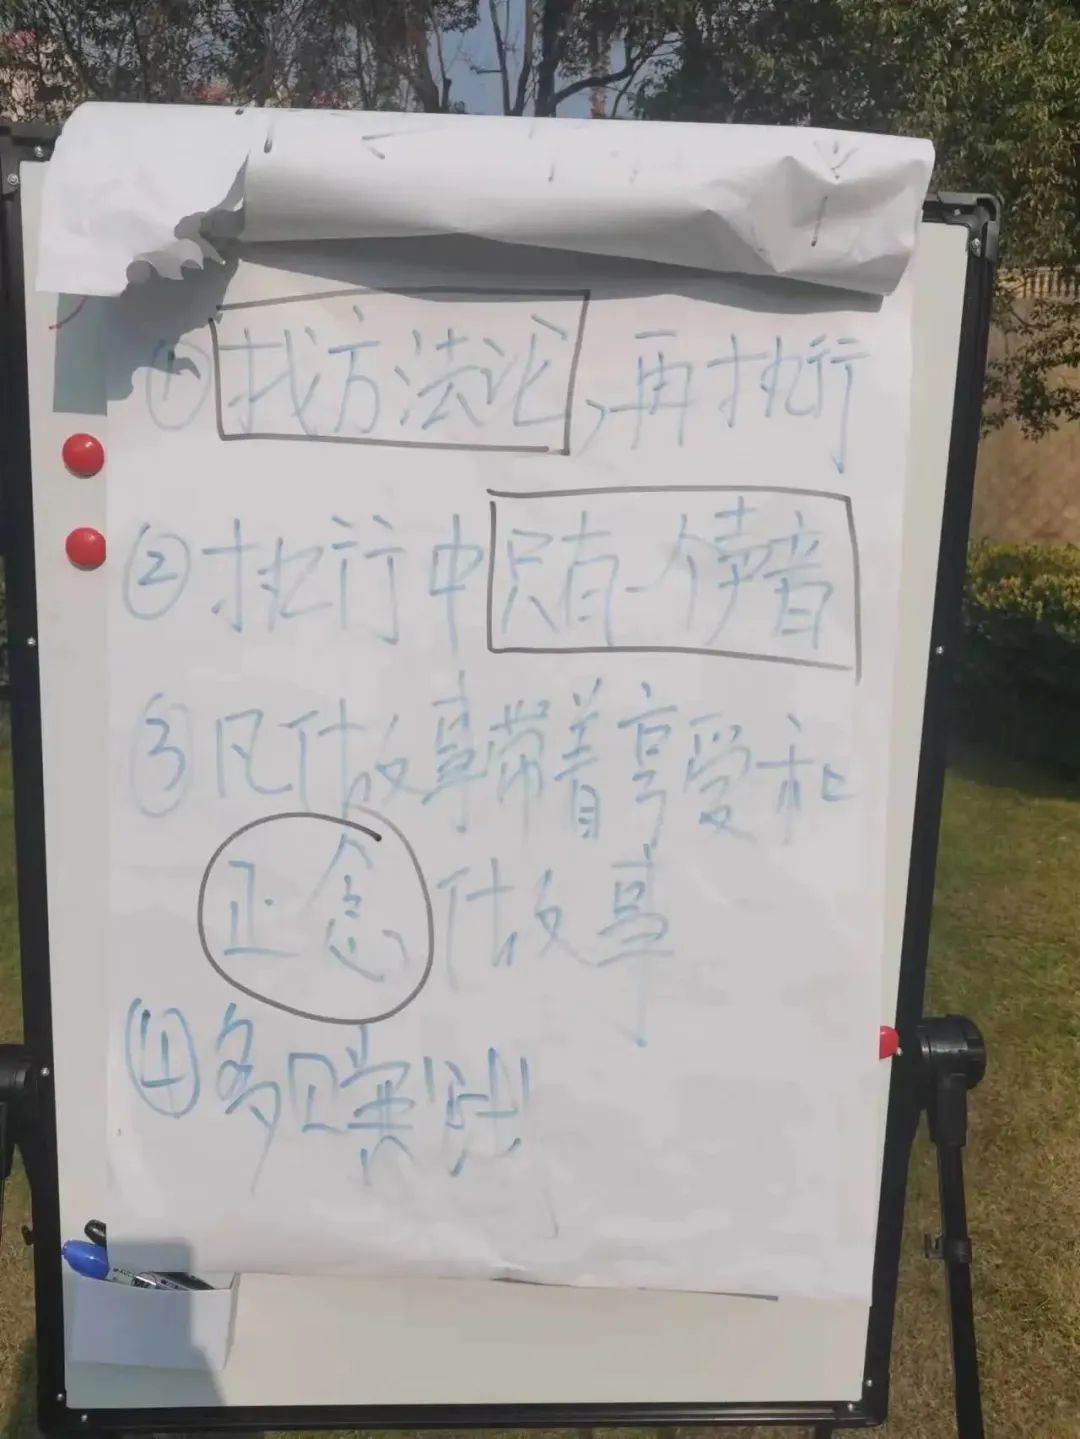 ①找方法论,再执行
②执行中只有一个声音
③凡做事带着享受和
正念做事
④多赚钱